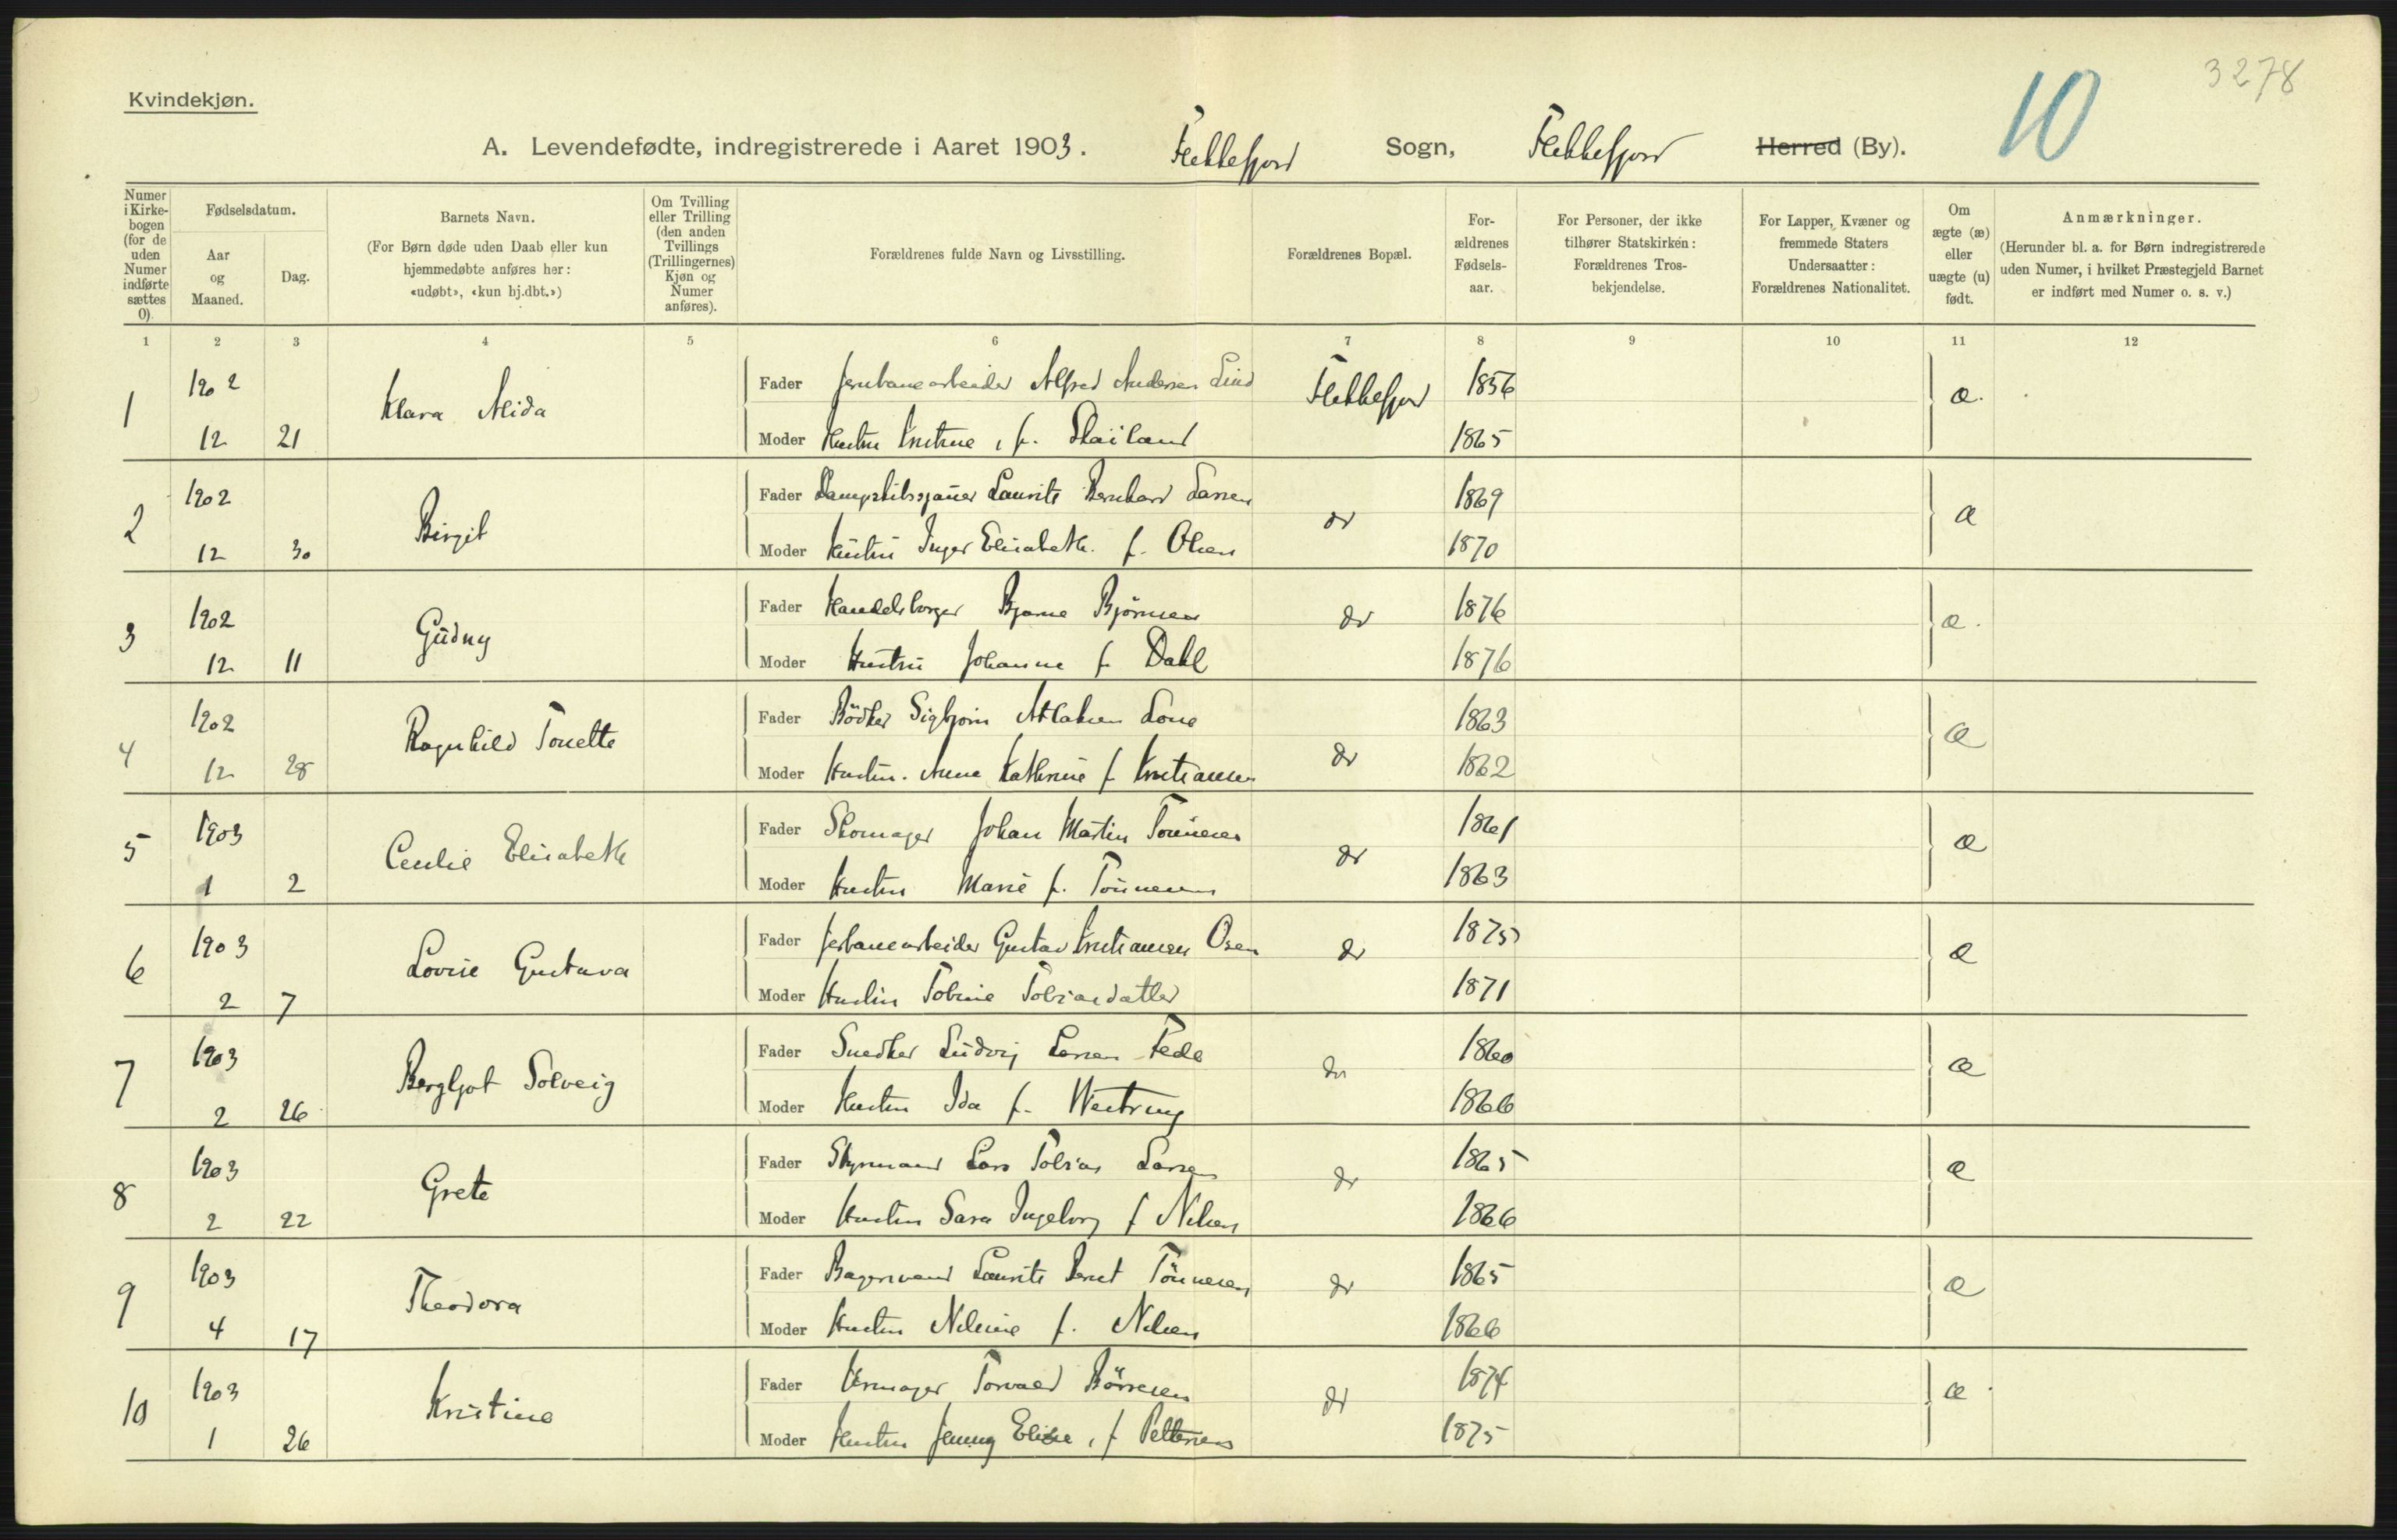 3278
10
Kvindekjøn.
A. Levendefødte, indregistrerede i Aaret 1903. Flekkefjord Sogn, Flekkefjord Herred (By).
Numer i Kirkebogen (for de uden Numer indførte sættes 0).
Fødselsdatum.
Aar og Maaned.
Dag.
Barnets Navn.
(For Børn døde uden Daab eller kun hjemmedøbte anføres her: «udøbt», «kun hj.dbt.»)
Om Tvilling eller Trilling (den anden Tvillings (Trillingernes) Kjøn og Numer anføres).
Forældrenes fulde Navn og Livsstilling.
Forældrenes Bopæl.
Forældrenes Fødselsaar.
For Personer, der ikke tilhører Statskirken: Forældrenes Trosbekjendelse.
For Lapper, Kvæner og fremmede Staters Undersaatter: Forældrenes Nationalitet.
Om ægte (æ) eller uægte (u) født.
Anmærkninger.
(Herunder bl. a. for Børn indregistrerede uden Numer, i hvilket Præstegjeld Barnet er indført med Numer o. s. v.)
1 2 3 4 5 6 7 8 9 10 11 12
1 1902 Klara Alida Fader Jernbanearbeider Alfred Andersen Lind Flekkefjord 1856 æ.
12 21 Moder Hustru Kristine, f. 1865
2 1902 Birgit Fader Lauritz Bernhard Larsen do 1869 æ
12 30 Moder Hustru Inger Elisabeth. f. Olsen 1870
3 1902 Gudny Fader Handelsborger Bjarne Bjørnsen do 1876 æ.
12 11 Moder Hustru Johanne f. Dahl 1876
4 1902 Ragnhild Tonette Fader Bødker Sigbjørn 1863 æ
12 28 Moder Hustru. Anna Kathrine f Kristiansen do 1862
5 1903 Cecilie Elisabeth Fader Skomager Johan Martin Tønnesen do 1861 æ
1 2 Moder Hustru Marie f. Tønnesen 1863
6 1903 Lovise Gustava Fader Jerbanearbeider Gustav Kristiansen Osen do 1875 æ
2 7 Moder Hustru Tobine Tobiasdatter 1871
7 1903 Bergljot Solveig Fader Snedker Ludvig Larsen Feda do 1860 æ
2 26 Moder Hustru Ida f. 1866
8 1903 Grete Fader Styrmand Lars Tobias Larsen do 1865 æ
2 22 Moder Hustru Sara Ingeborg f Nilsen 1866
9 1903 Theodora Fader Lauritz Bernt Tønnesen do 1865 æ
4 17 Moder Hustru Nilsine f. Nilsen 1866
10 1903 Kristine Fader Urmager Torvald Børresen do 1874 æ
1 26 Moder Hustru Jenny Elise, f Pettersen 1875